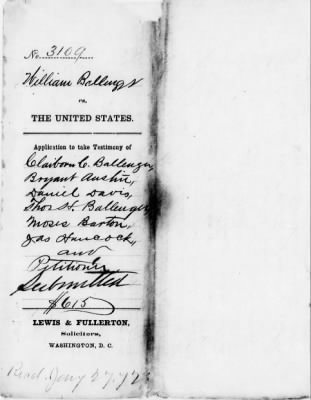 No. 3169
William Ballinger
vs.
THE UNITED STATES.
Application to take Testimony of
Claiborn C. Ballenger,
Bryant Austin,
Daniel Davis,
Thos H. Ballenger,
Moses Barton,
Jas Hancock,
and
Petitioner
Submitted
$615
LEWIS & FULLERTON,
Solicitors,
WASHINGTON, D. C.
Recd. Jany 27,